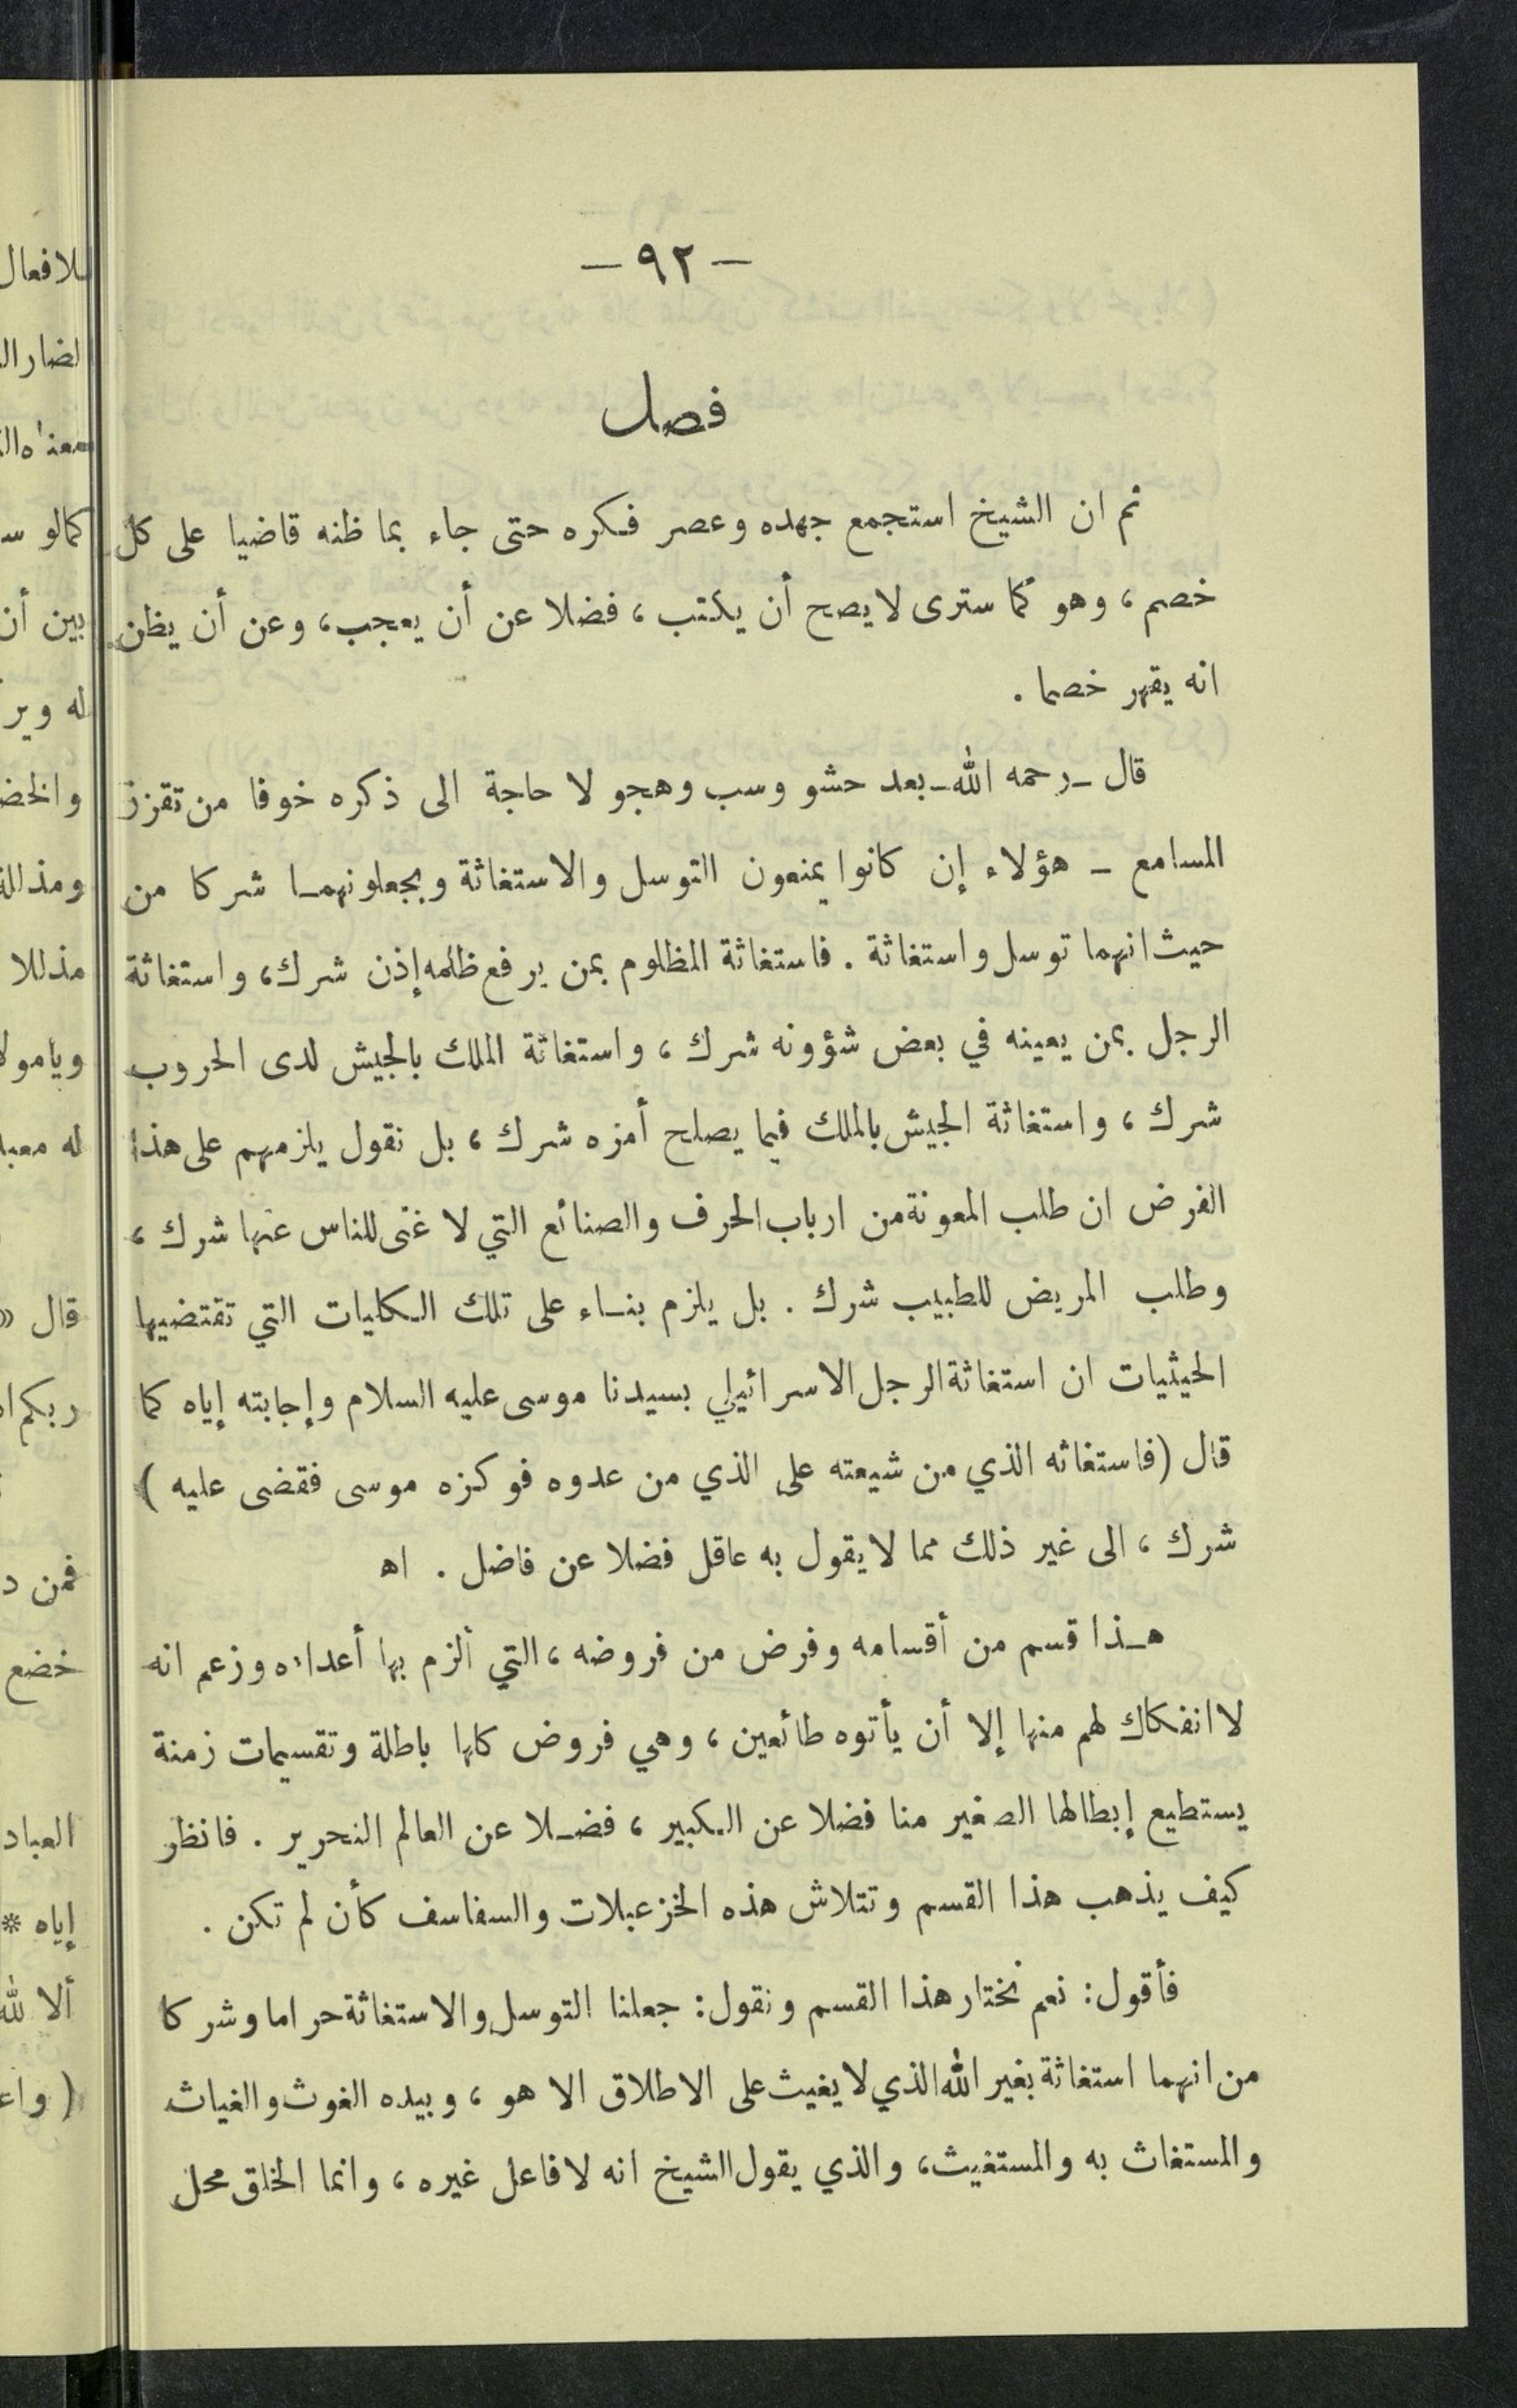 — ٩٢ —
فصل
ثم ان الشيخ استجمع جهده وعصر فكره حتى جاء بما ظنه قاضيا على كل
خصم، وهو كما سترى لا يصح أن يكتب، فضلا عن أن يعجب، وعن أن يظن
انه يقهر خصما .
قال -رحمه الله- بعد حشو وسب وهجو لا حاجة الى ذكره خوفا من تقزز
المسامع - هؤلاء إن كانوا يمنعون التوسل والاستغاثة ويجعلونهما شركا من
حيث انهما توسل واستغاثة . فاستغاثة المظلوم بمن يرفع ظلمه إذن شرك، واستغاثة
الرجل بمن يعينه في بعض شؤونه شرك، واستغاثة الملك بالجيش لدى الحروب
شرك، واستغاثة الجيش بالملك فيما يصلح أمره شرك، بل نقول يلزمهم على هذا
الفرض ان طلب المعونة من ارباب الحرف والصنائع التي لا غنى للناس عنها شرك،
وطلب المريض للطبيب شرك . بل يلزم بناء على تلك الكليات التي تقتضيها
الحيثيات ان استغاثة الرجل الاسرائيلي بسيدنا موسى عليه السلام وإجابته إياه كما
قال (فاستغاثه الذي من شيعته على الذي من عدوه فوكزه موسى فقضى عليه )
شرك، الى غير ذلك مما لا يقول به عاقل فضلا عن فاضل . اه
هذا قسم من أقسامه وفرض من فروضه، التي ألزم بها أعداءه وزعم انه
لا انفكاك لهم منها إلا أن يأتوه طائعين، وهي فروض كلها باطلة وتقسيمات زمنة
يستطيع إبطالها الصغير منا فضلا عن الكبير، فضلا عن العالم النحرير . فانظر
كيف يذهب هذا القسم وتتلاش هذه الخزعبلات والسفاسف كأن لم تكن .
فأقول: نعم نختار هذا القسم ونقول: جعلنا التوسل والاستغاثة حراما وشركا
من انهما استغاثة بغير الله الذي لا يغيث على الاطلاق الا هو، وبيده الغوث والغياث
والمستغاث به والمستغيث، والذي يقول الشيخ انه لا فاعل غيره، وانما الخلق محل